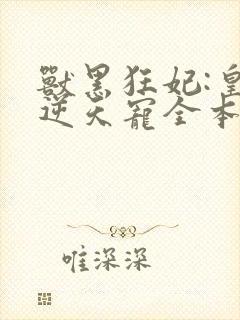 獸黑狂妃:皇
逆天寵全本
唯深深